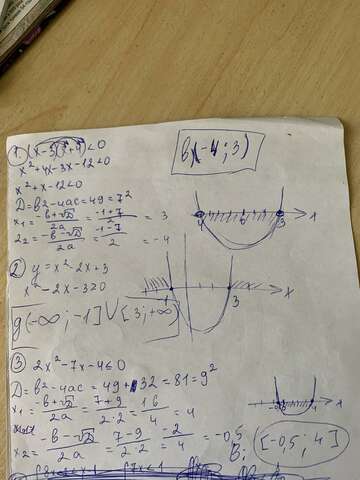 1. (x-3)(x+4)<0
x²+4x-3x-12<0
x²+x-12<0
D=b²-4ac=49=7²
x₁=(-b+√D)/2a=(-1+7)/2=3
x₂=(-b-√D)/2a=(-1-7)/2=-4
в)(-4;3)
-4 3 x
2) y=x²-2x+3
x²-2x-3≥0
-1 3 x
g(-∞;-1]∪[3;+∞)
3) 2x²-7x-4≤0
D=b²-4ac=49+32=81=9²
x₁=(-b+√D)/2a=(7+9)/2·2=16/4=4
x₂=(-b-√D)/2a=(7-9)/2·2=-2/4=-0,5
-0,5 4 x
В; [-0,5; 4]